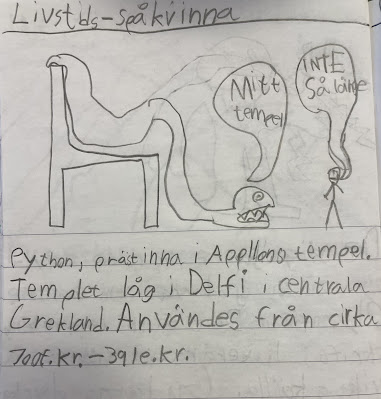 Livstids-spåkvinna
Mitt
tempel
INTE
Så länge
Python, prästinna i Appllons tempel.
Templet låg i Delfi i centrala
Grekland. Användes från cirka
700f.kr.-391e.kr.